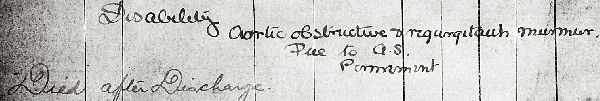 Disability
Aortic obstructive & regurgitant murmur.
Due to A.S.
Permanent
Died after Discharge.